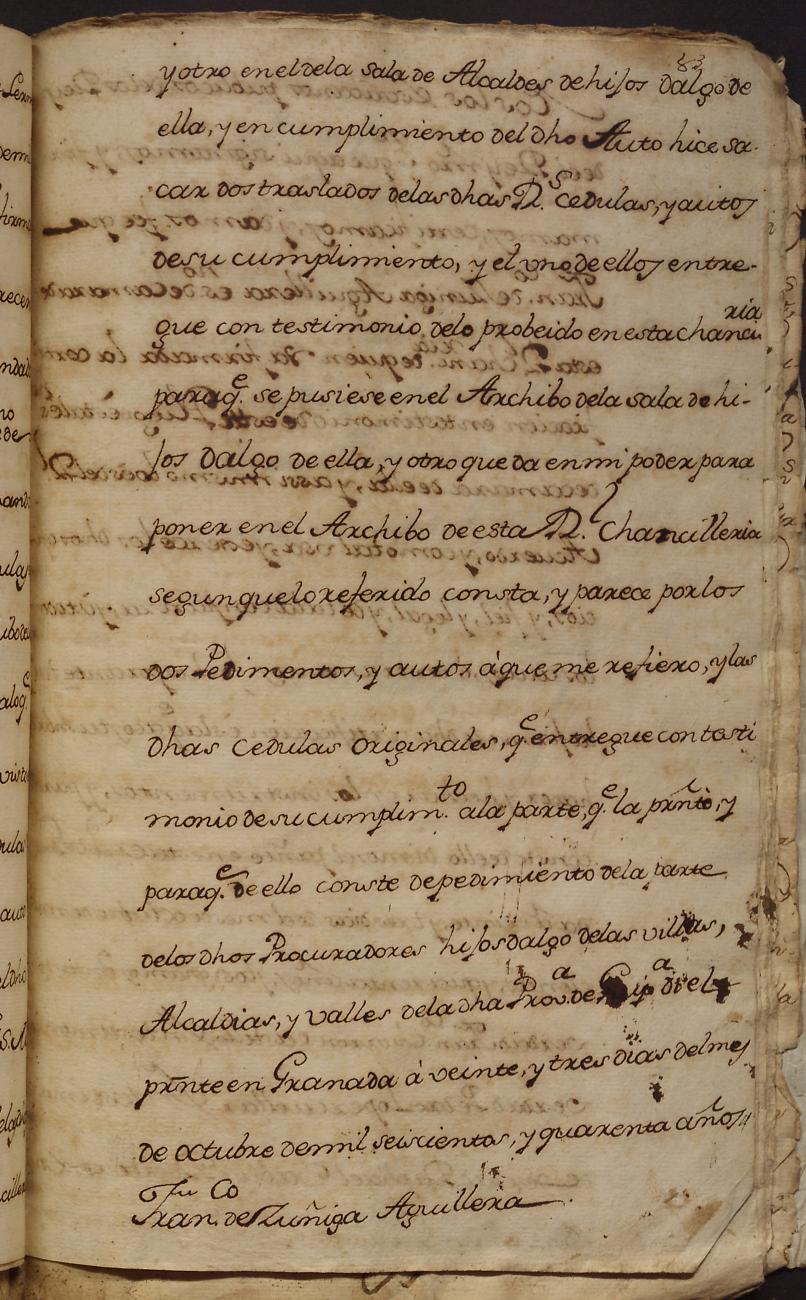 83
y otro en el dela sala de Alcaldes de hijos dalgo de
ella, y en cumplimiento del dho Auto hice sa-
car dos traslados delas dhas R.s cedulas, y autos
de su cumplimiento, y el vno de ellos entre-
gue con testimonio delo probeido en esta chanci
ria
para q.e se pusiese en el Archibo dela sala de hi-
jos dalgo de ella, y otro queda en mi poder para
poner en el Archibo de esta R.l Chancilleria
segun que lo referido consta, y parece por los
dos Pedimentos, y autos à que me refiero, y las
dhas cedulas originales, q.e entregue con testi
monio de su cumplim.to ala parte, q.e la prn̄to, y
para q.e de ello conste de pedimiento dela parte
delos dhos Procuradores hijosdalgo delas villas,
Alcaldias, y valles dela dha Prov.a de Gip.a di el
prn̄te en Granada à veinte, y tres dias del mes
de octubre de mil seiscientos, y quarenta años
Fran.co de Zuñiga Aguillera